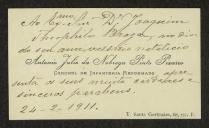 Ao Exmo Snr Dr. Joaquim
Theophilo Braga, no dia
do seu anniversario natalicio
Antonio Julio da Nobrega Pinto Pizarro
Coronel de Infantaria Reformado apre
senta os seus muito cordeaes e
sinceros parabens.
24-2-1911.
T. Santa Gertrudes,